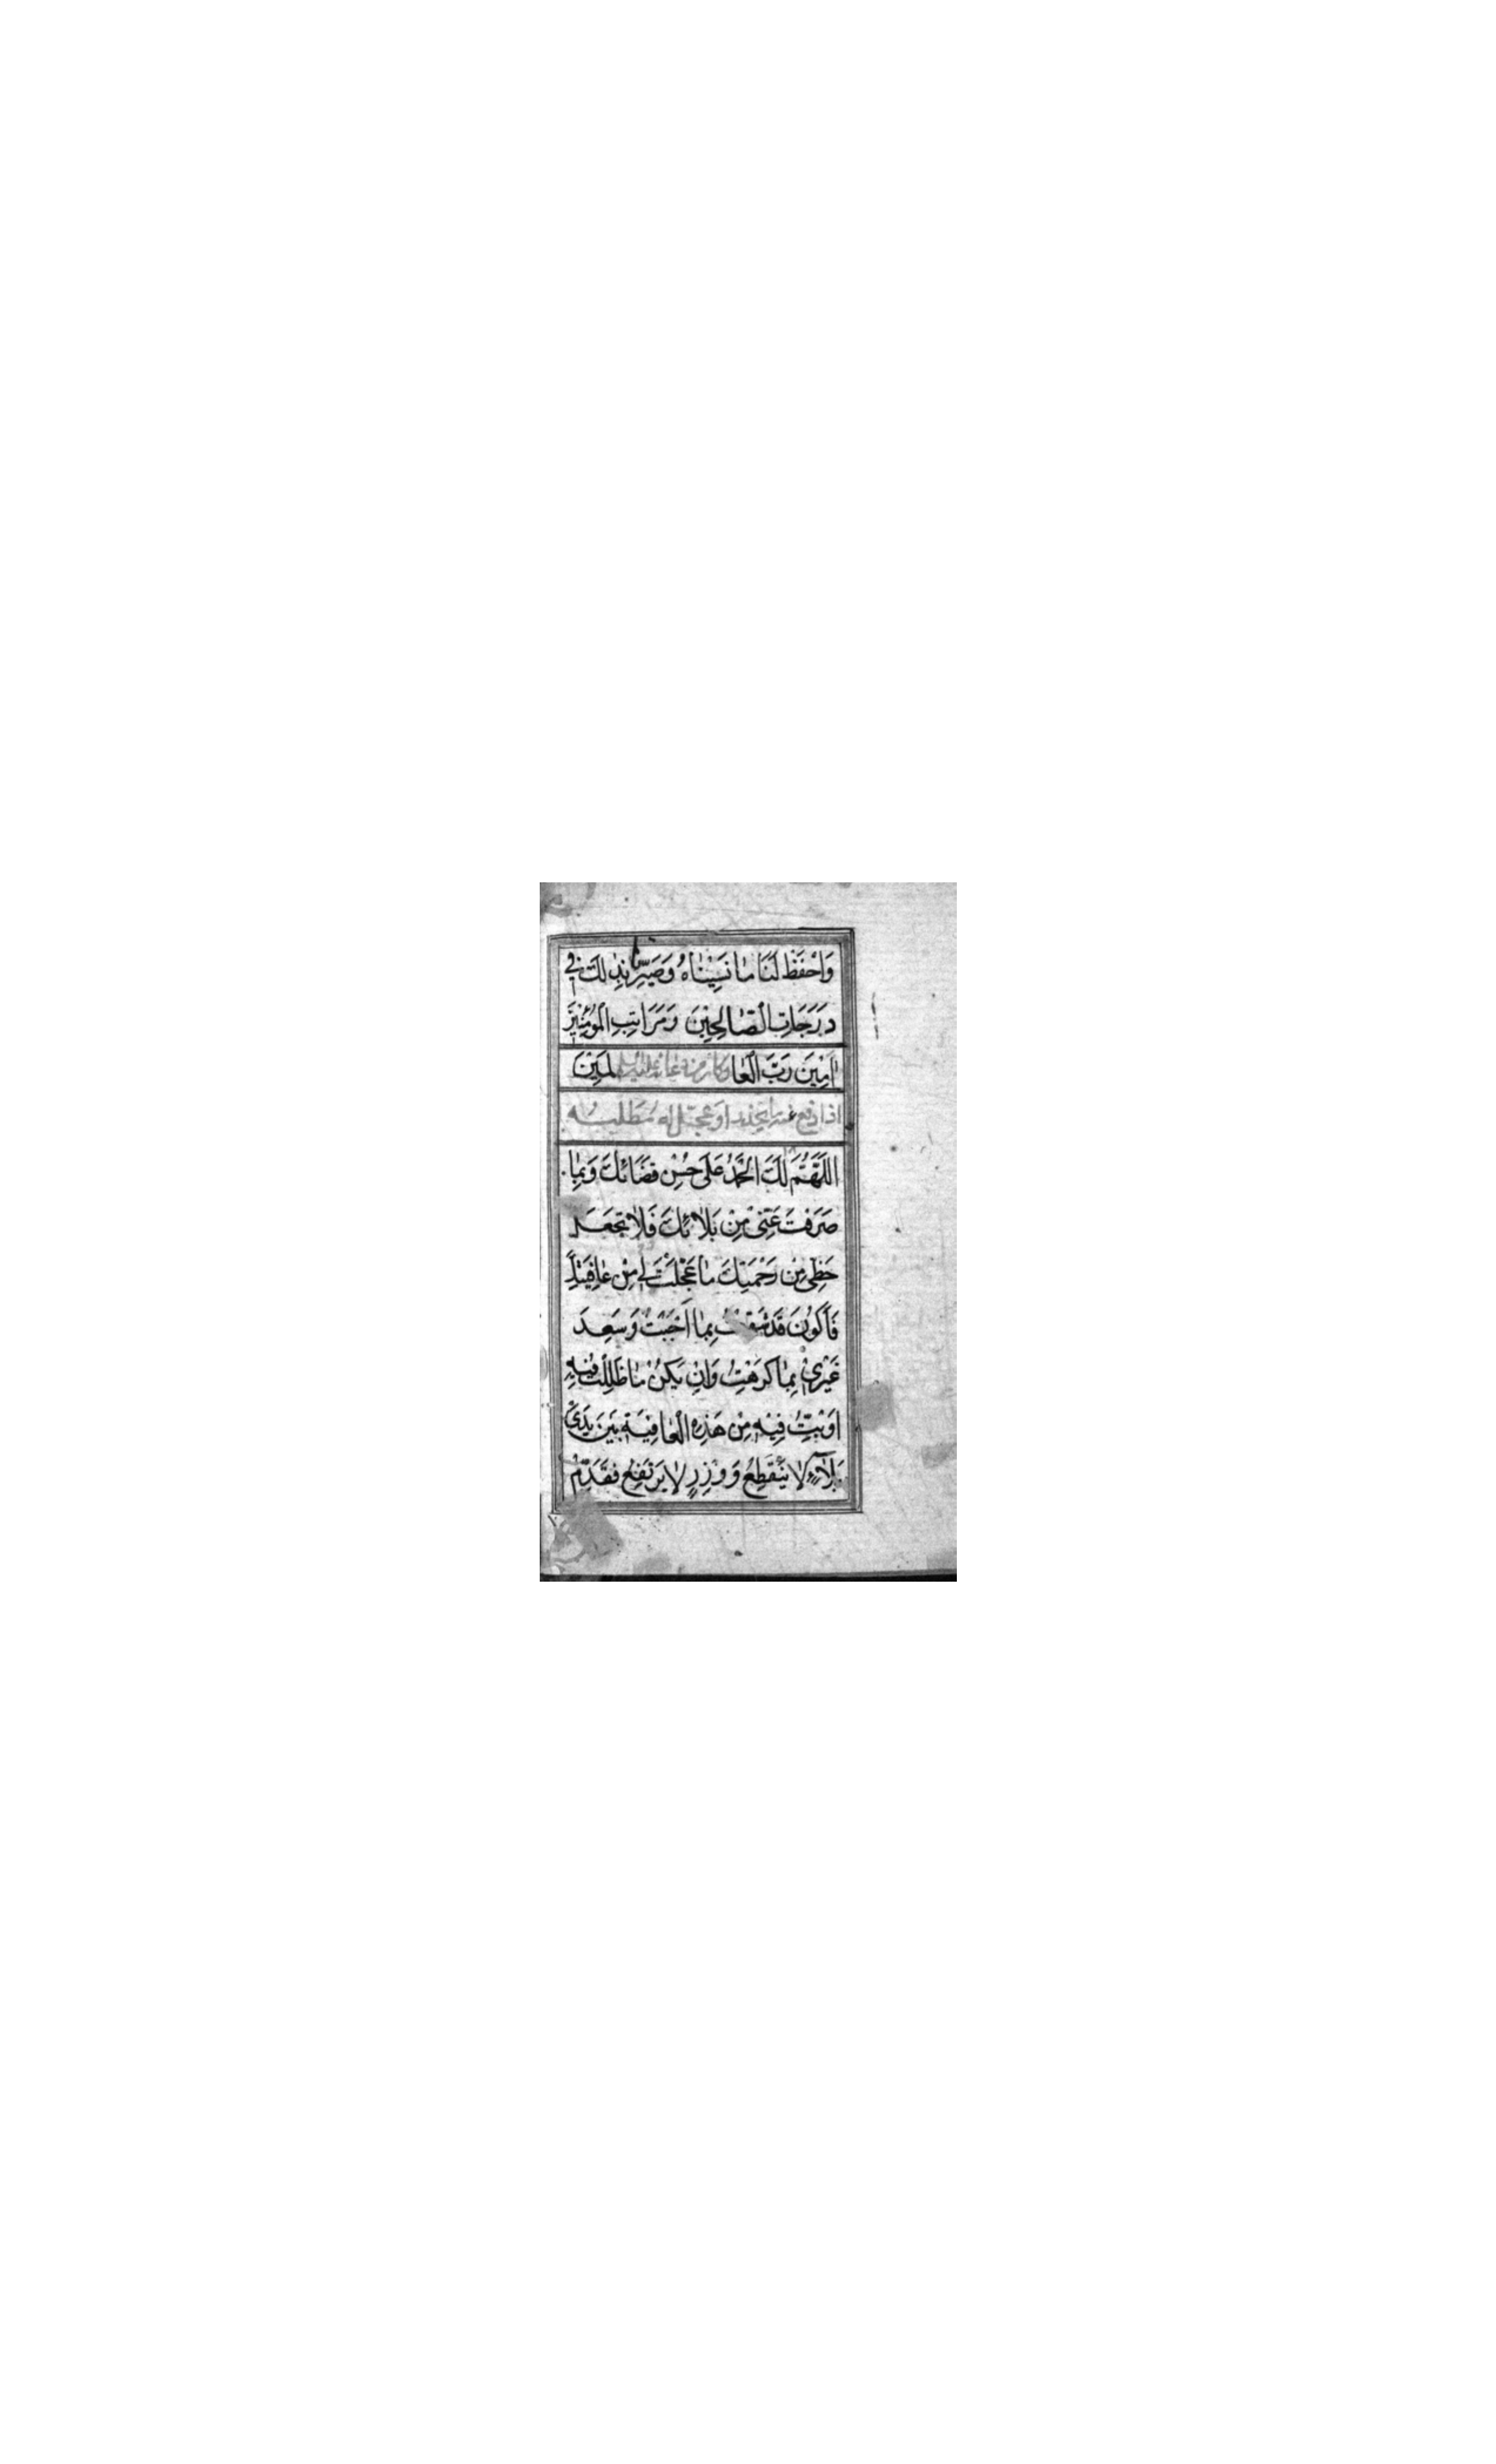 وَاحْفَظْ لَنَا مَا نَسِينَاهُ وَصَيِّرْنَا بِذٰلِكَ فِي
دَرَجَاتِ الصَّالِحِينَ وَمَرَاتِبِ الْمُؤْمِنِينَ
اٰمِينَ رَبَّ الْعَالَمِينَ وكان من دعائه عليه السلم
اذا دفع عنه ما يحذر او عجّل له مطلبه
اَللّٰهُمَّ لَكَ الْحَمْدُ عَلَى حُسْنِ قَضَائِكَ وَبِمَا
صَرَفْتَ عَنِّي مِنْ بَلَائِكَ فَلَا تَجْعَلْ
حَظِّي مِنْ رَحْمَتِكَ مَا عَجَّلْتَ لِي مِنْ عَافِيَتِكَ
فَاَكُونَ قَدْ شَقِيتُ بِمَا اَحْبَبْتُ وَسَعِدَ
غَيْرِي بِمَا كَرِهْتُ وَاِنْ يَكُنْ مَا ظَلِلْتُ فِيهِ
اَوْ بِتُّ فِيهِ مِنْ هٰذِهِ الْعَافِيَةِ بَيْنَ يَدَيْ
بَلَاءٍ لَا يَنْقَطِعُ وَوِزْرٍ لَا يَرْتَفِعُ فَقَدِّمْ